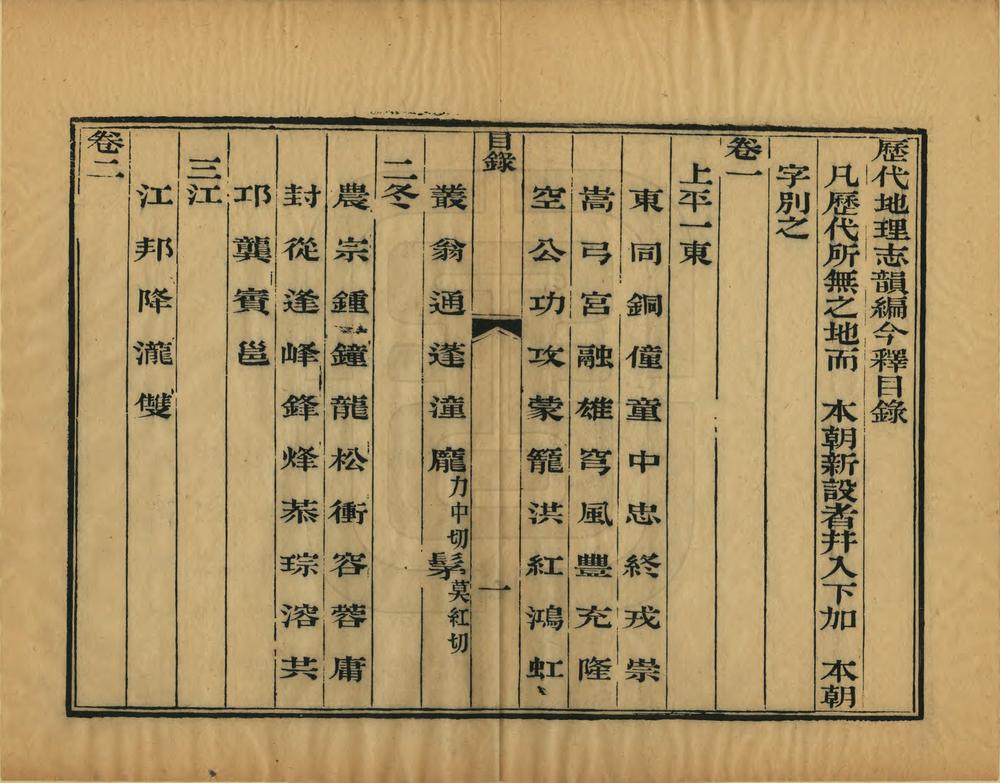 歷代地理志韻編今釋目錄
凡歷代所無之地而　本朝新設者幷入下加　本朝
字別之
卷一
上平一東
東同銅僮童中忠終戎崇
嵩弓宮融雄穹風豐充隆
空公功攻蒙籠洪紅鴻虹
目錄　一
叢翁通蓬潼龐力中切髳莫紅切
二冬
農宗鍾鐘龍松衝容蓉庸
封從逢峰鋒烽恭琮溶共
邛龔賨邕
三江
江邦降瀧雙
卷二